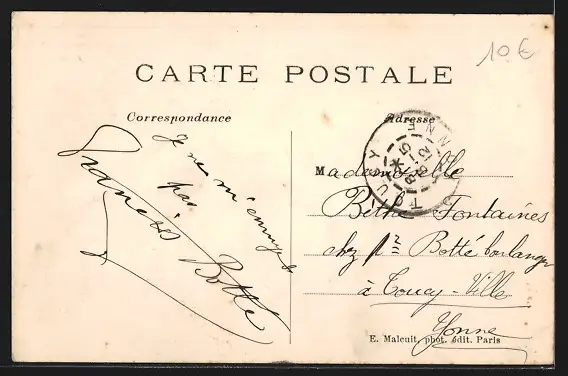 10€
CARTE POSTALE
Correspondance
Adresse
Je ne m'ennuye
pas
Francis Botté
Mademoiselle
Béthe Fontaines
chez Botté boulanger
à Toucy-Ville
Yonne
E. Malcuit, phot. édit. Paris